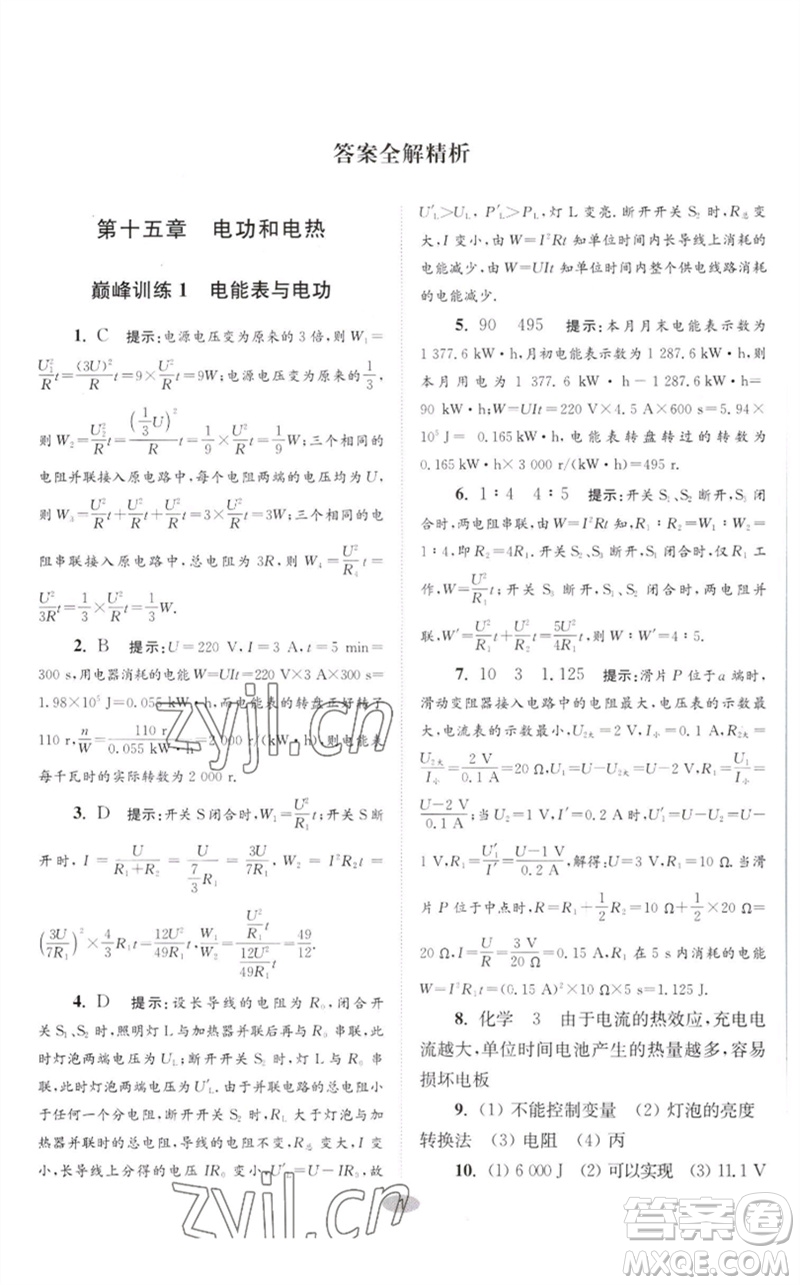 答案全解精析
第十五章　电功和电热
巅峰训练1　电能表与电功
1. C　提示:电源电压变为原来的3倍,则 W₁=
U₁²/R t=(3U)²/R t=9×U²/R t=9W;电源电压变为原来的1/3,
则 W₂=U₂²/R t=(1/3 U)²/R t=1/9×U²/R t=1/9 W;三个相同的
电阻并联接入原电路中,每个电阻两端的电压为U,
则 W₃=U²/R t+U²/R t+U²/R t=3×U²/R t=3W;三个相同的电
阻串联接入原电路中,总电阻为3R,则 W₄=U²/R₄ t=
U²/3R t=1/3×U²/R t=1/3 W.
2. B　提示:U=220 V,I=3 A,t=5 min=
300 s,用电器消耗的电能 W=UIt=220 V×3 A×300 s=
1.98×10⁵ J=0.055 kW·h,而电能表的转盘正好转了
110 r,n/W=110 r/0.055 kW·h=2 000 r/(kW·h),则电能表
每千瓦时的实际转数为2 000 r.
3. D　提示:开关S闭合时,W₁=U²/R₁ t;开关S断
开时,I=U/(R₁+R₂)=U/(7/3 R₁)=3U/7R₁,W₂=I²R₂t=
(3U/7R₁)²×4/3 R₁t=12U²/49R₁ t,W₁/W₂=(U²/R₁ t)/(12U²/49R₁ t)=49/12.
4. D　提示:设长导线的电阻为R₀,闭合开关
S₁、S₂时,照明灯L与加热器并联后再与R₀串联,此
时灯泡的电压为U′L.由于并联电路中,总电阻小
于任何一个分电阻,导线的电阻不变,R总大于灯泡与
加热器并联时的总电阻,即R总变大,I变小.只闭合开
关S₁时,长导线上分得的电压IR₀变小,U′L=U−IR₀,故
U′L>UL,P′L>PL,灯L变亮.断开开关S₂时,R总变
大,I变小,由W=I²Rt知单位时间内长导线上消耗的
电能减少,由W=UIt知单位时间内整个供电线路消耗
的电能减少.
5. 90　495　提示:本月月末电能表示数为
1 377.6 kW·h,月初电能表示数为1 287.6 kW·h,则
本月用电为1 377.6 kW·h−1 287.6 kW·h=
90 kW·h;W=UIt=220 V×4.5 A×600 s=5.94×
10⁵ J=0.165 kW·h,电能表转盘转过的转数为
0.165 kW·h×3 000 r/(kW·h)=495 r.
6. 1∶4　4∶5　提示:开关S₁、S₂断开,S₃闭
合时,两电阻串联,由W=I²Rt知,R₁∶R₂=W₁∶W₂=
1∶4,即R₂=4R₁.开关S₂、S₃断开,S₁闭合时,仅R₁工
作,W=U²/R₁ t;开关S₃断开,S₁、S₂闭合时,两电阻并
联,W′=U²/R₁ t+U²/R₂ t=5U²/4R₁ t,则W∶W′=4∶5.
7. 10　3　1.125　提示:滑片P位于a端时,
滑动变阻器接入电路中的阻值最大,电压表的示数最
大,电流表的示数最小,U₂大=2 V,I小=0.1 A,R₂=
U₂大/I小=2 V/0.1 A=20 Ω,U₁=U−U₂大=U−2 V,R₁=U₁/I小=
(U−2 V)/0.1 A;当U₂=1 V,I′=0.2 A时,U₁′=U−U₂=U−
1 V,R₁=U₁′/I′=(U−1 V)/0.2 A,解得:U=3 V,R₁=10 Ω.当滑
片P位于中点时,R=R₁+1/2 R₂=10 Ω+1/2×20 Ω=
20 Ω,I=U/R=3 V/20 Ω=0.15 A,R₁在5 s内消耗的电能
W=I²R₁t=(0.15 A)²×10 Ω×5 s=1.125 J.
8. 化学　3　由于电流的热效应,充电电
流越大,单位时间电池产生的热量越多,容易
损坏电板
9. (1) 不能控制变量　(2) 灯泡的亮度
转换法　(3) 电阻　(4) 丙
10. (1) 6 000 J　(2) 可以实现　(3) 11.1 V
1
zyjl.cn
zyjl.cn
答案圈
MXQE.COM